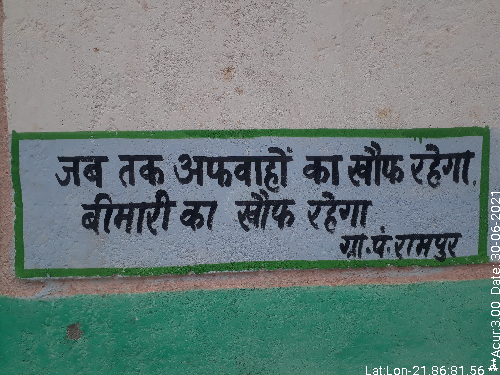 जब तक अफवाहों का खौफ रहेगा,
बीमारी का खौफ रहेगा
ग्रा.पं.रामपुर
Lat:Lon-21.86:81.56
**Acur:3.00 Date: 30-06-2021